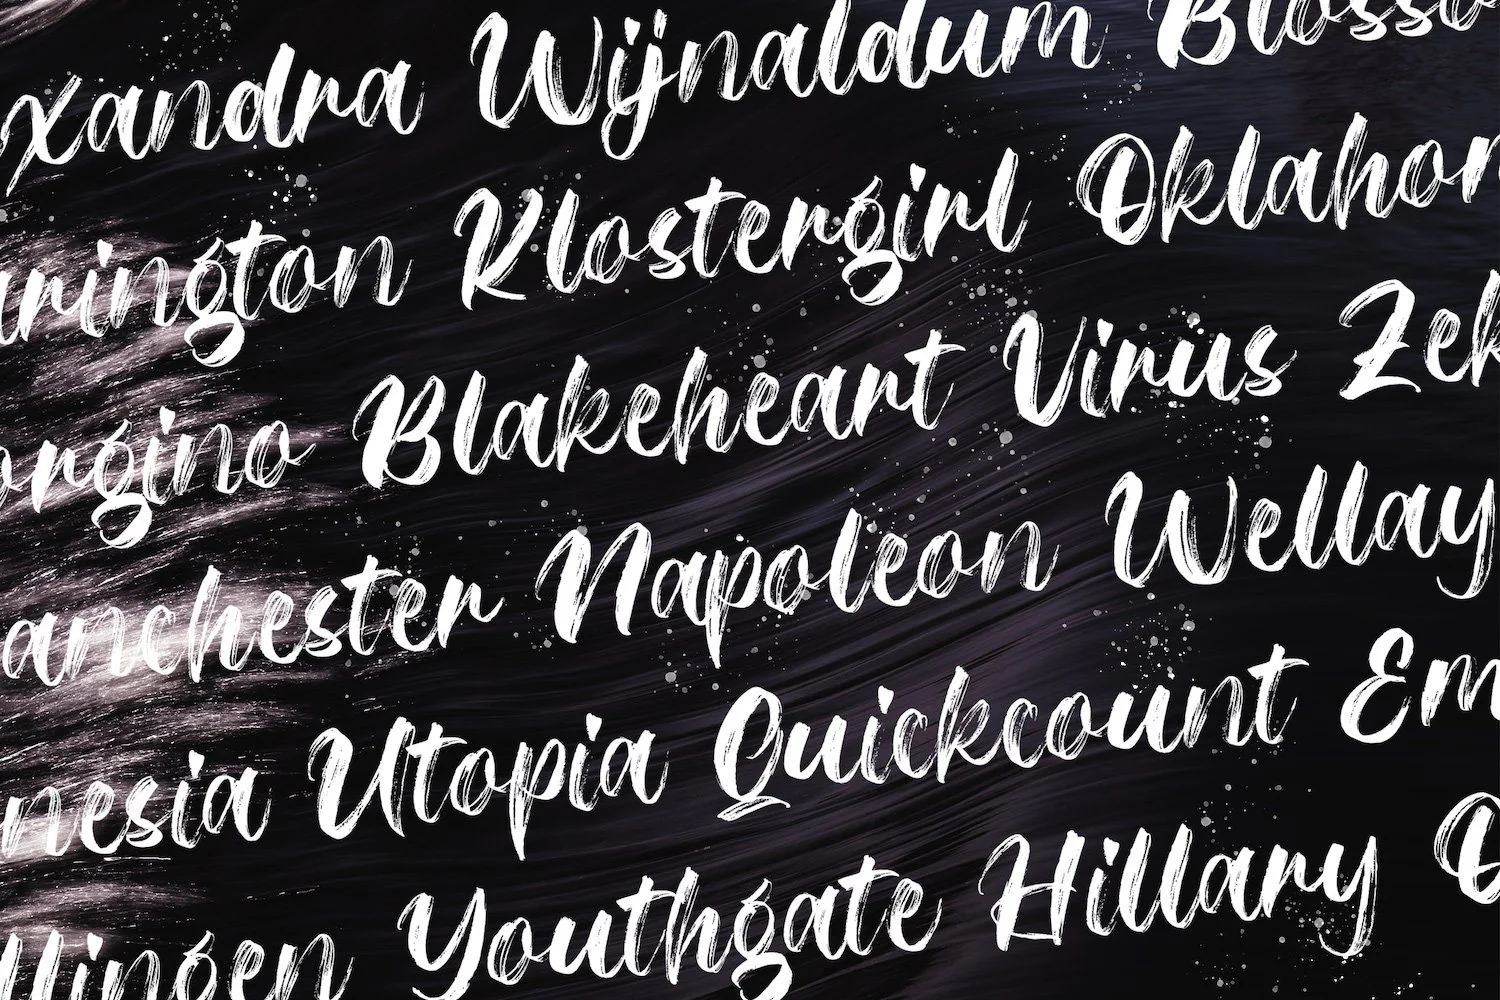 xandra Wijnaldum Blosso
rington Klostergirl Oklahom
orgino Blakeheart Virus Zek
anchester Napoleon Wellay
nesia Utopia Quickcount Em
llingen Youthgate Hillary O